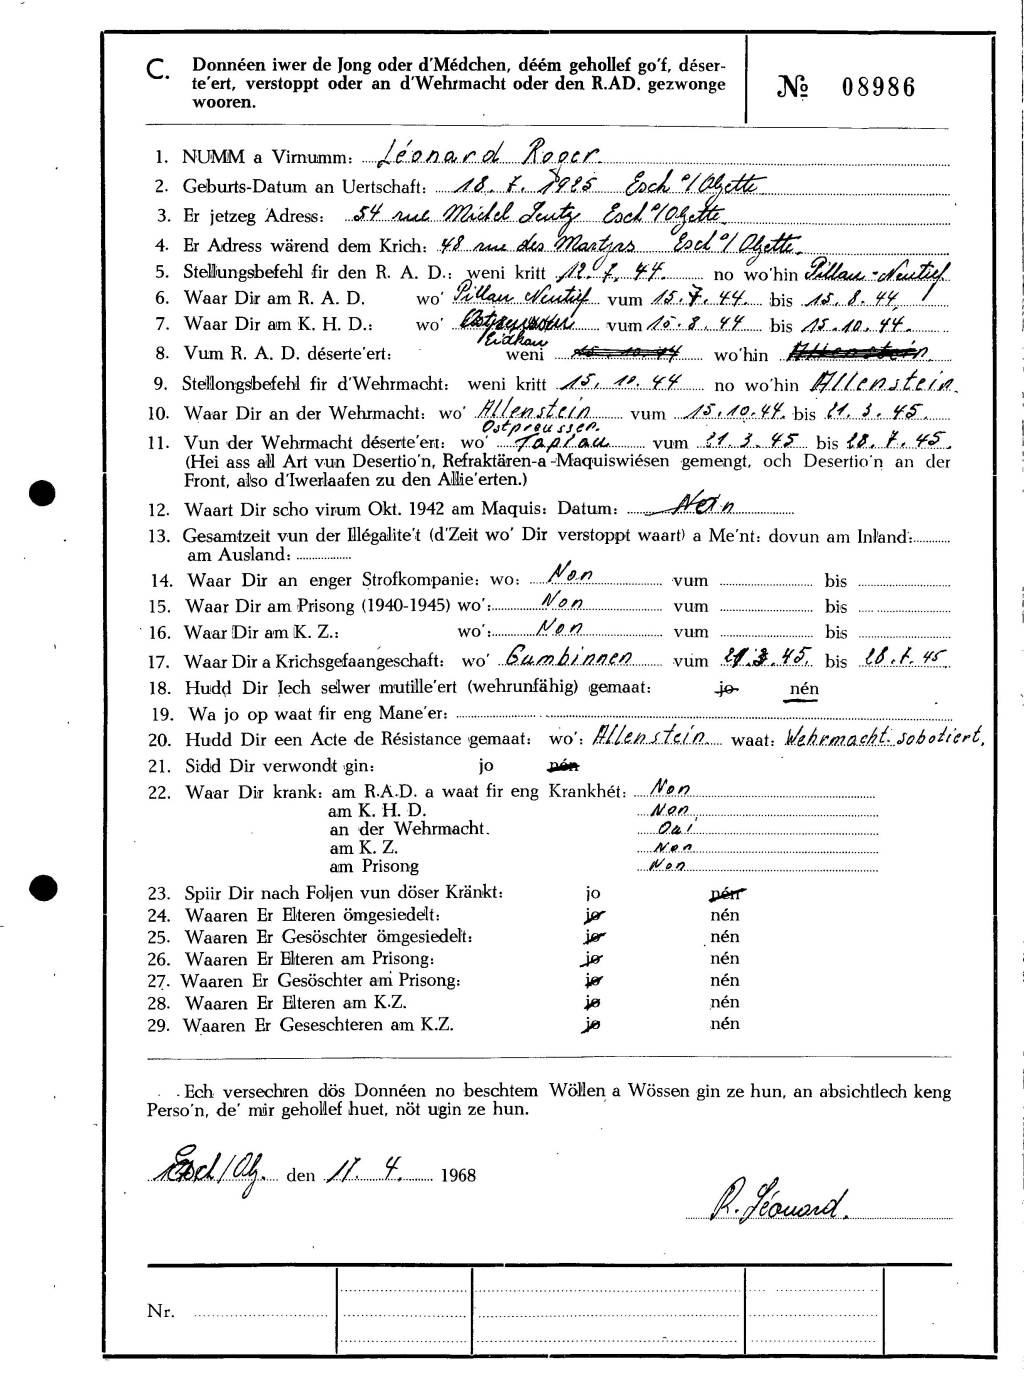 C. Donnéen iwer de Jong oder d'Médchen, déém gehollef go'f, déser-
te'ert, verstoppt oder an d'Wehrmacht oder den R.AD. gezwonge
wooren.
№ 08986
1. NUMM a Virnumm: Léonard Roger.
2. Geburts-Datum an Uertschaft: 18. 7. 1925 Esch s/Alzette
3. Er jetzeg Adress: 54 rue Michel Lentz Esch s/Alzette.
4. Er Adress wärend dem Krich: 48 rue des Martyrs Esch s/Alzette.
5. Stellungsbefehl fir den R. A. D.: weni kritt 12. 7. 44. no wo'hin Pillau-Neutief
6. Waar Dir am R. A. D. wo' Pillau Neutief vum 15.7.44. bis 15.8.44.
7. Waar Dir am K. H. D.: wo' vum 15.8.44 bis 15.10.44.
Eidkau
8. Vum R. A. D. déserte'ert: weni 15.10.44 wo'hin Allenstein
9. Stellongsbefehl fir d'Wehrmacht: weni kritt 15. 10. 44 no wo'hin Allenstein.
10. Waar Dir an der Wehrmacht: wo' Allenstein vum 15.10.44. bis 21. 3. 45.
Ostpreussen.
11. Vun der Wehrmacht déserte'ert: wo' Taplau vum 21.3.45 bis 28.7.45.
(Hei ass all Art vun Desertio'n, Refraktären-a-Maquiswiésen gemengt, och Desertio'n an der
Front, also d'Iwerlaafen zu den Allie'erten.)
12. Waart Dir scho virum Okt. 1942 am Maquis: Datum: Nein
13. Gesamtzeit vun der Illégalite't (d'Zeit wo' Dir verstoppt waart) a Me'nt: dovun am Inland:
am Ausland:
14. Waar Dir an enger Strofkompanie: wo: Non vum bis
15. Waar Dir am Prisong (1940-1945) wo': Non vum bis
16. Waar Dir am K. Z.: wo': Non vum bis
17. Waar Dir a Krichsgefaangeschaft: wo' Gumbinnen vum 21.3.45. bis 28.7.45
18. Hudd Dir Iech selwer mutille'ert (wehrunfähig) gemaat: jo nén
19. Wa jo op waat fir eng Mane'er:
20. Hudd Dir een Acte de Résistance gemaat: wo': Allenstein waat: Wehrmacht sobotiert.
21. Sidd Dir verwondt gin: jo nén
22. Waar Dir krank: am R.A.D. a waat fir eng Krankhét: Non
am K. H. D. Non
an der Wehrmacht. Oui
am K. Z. Non
am Prisong Non
23. Spiir Dir nach Foljen vun döser Kränkt: jo nén
24. Waaren Er Elteren ömgesiedelt: jo nén
25. Waaren Er Gesöschter ömgesiedelt: jo nén
26. Waaren Er Elteren am Prisong: jo nén
27. Waaren Er Gesöschter am Prisong: jo nén
28. Waaren Er Elteren am K.Z. jo nén
29. Waaren Er Geseschteren am K.Z. jo nén
Ech versechren dös Donnéen no beschtem Wöllen a Wössen gin ze hun, an absichtlech keng
Perso'n, de' mir gehollef huet, nöt ugin ze hun.
Esch/Alz. den 17. 4. 1968
R. Léonard.
Nr.